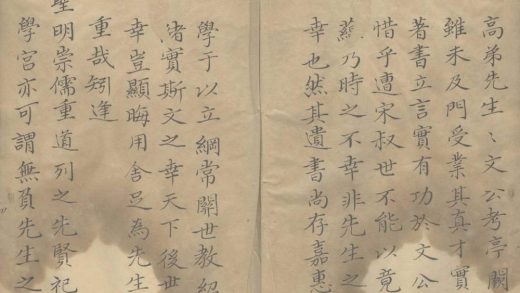 高弟先生〻文公考亭闕
雖未及門受業其真才實
著書立言實有功於文公
惜乎遭宋叔世不能以竟
蕋乃時之不幸非先生之
幸也然其遺書尚存嘉惠
學于以立綱常關世教紹
渚實斯文之幸天下後世
幸豈顯晦用舍足為先生
重哉矧逢
聖明崇儒重道列之先賢祀
學宮亦可謂無負先生之